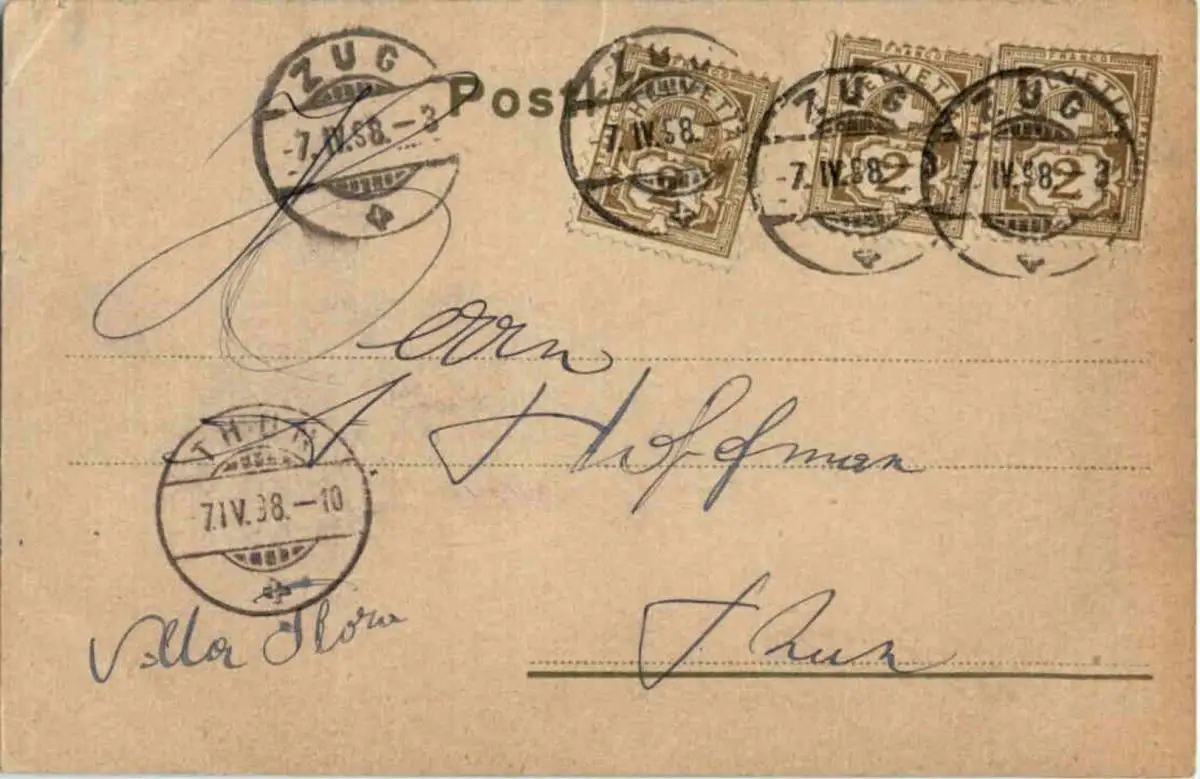 ZUG
-7.IV.98.-3
Post
FRANCO
HELVETIA
7.IV.98.
2
ZUG
-7.IV.98.-3
FRANCO
HELVETIA
2
ZUG
7.IV.98.-3
FRANCO
HELVETIA
2
Herrn
J Hoffman
THUN
-7.IV.98.-10
Villa Flora
Thun